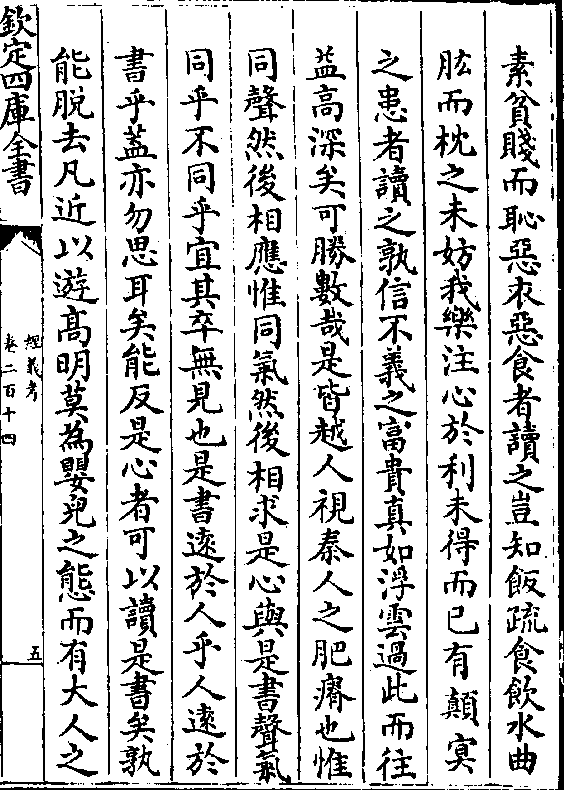 素貧賤而恥惡衣惡食者讀之豈知飯疏食飲水曲
肱而枕之未妨我樂注心於利未得而已有顛㝠
之患者讀之孰信不義之富貴真如浮雲過此而往
益高深矣可勝數哉是皆越人視秦人之肥瘠也惟
同聲然後相應惟同氣然後相求是心與是書聲氣
同乎不同乎宜其卒無見也是書逺於人乎人逺於
書乎葢亦勿思耳矣能反是心者可以讀是書矣孰
能脫去凡近以遊髙明莫為嬰兒之態而有大人之
欽定四庫全書
經義考
卷二百十四
五